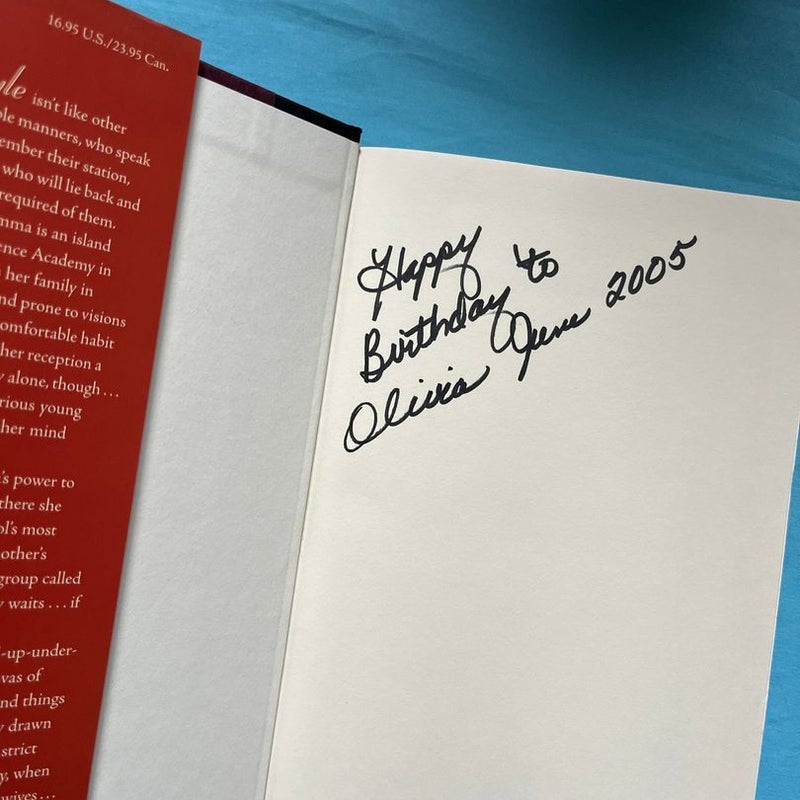 16.95 U.S./23.95 Can.
isn't like other
manners, who speak
their station,
who will lie back and
required of them.
is an island
Academy in
her family in
prone to visions
habit
her reception a
alone, though...
young
her mind
power to
there she
most
group called
waits...if
-up-under-
was of
things
drawn
strict
when
wives...
Happy
Birthday to
Olivia June 2005